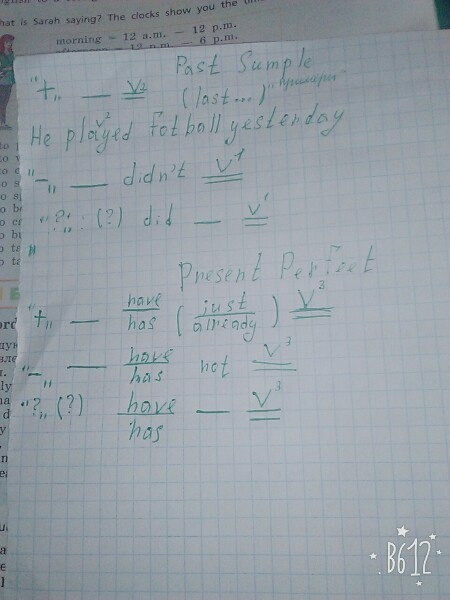 What is Sarah saying? The clocks show you the time
morning = 12 a.m. – 12 p.m.
12 p.m. – 6 p.m.
Past Sumple
"+" — V2 (last...) "примеры"
V2
He played fotball yesterday
"–" — didn't V1
"?": (?) did — V1
Present Perfect
"+" — have/has (just/already) V3
"–" — have/has not V3
"?" (?) have/has — V3
B612